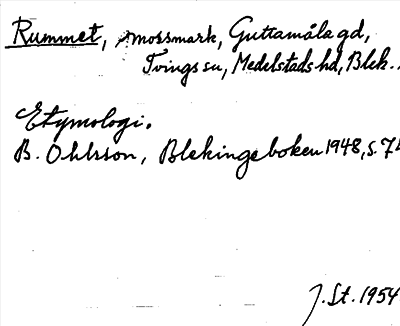 Rummet, mossmark, Guttamåla gd,
Tvings sn, Medelstads hd, Blek.
Etymologi.
B. Ohlsson, Blekingeboken 1948, s. 7
J. St. 1954